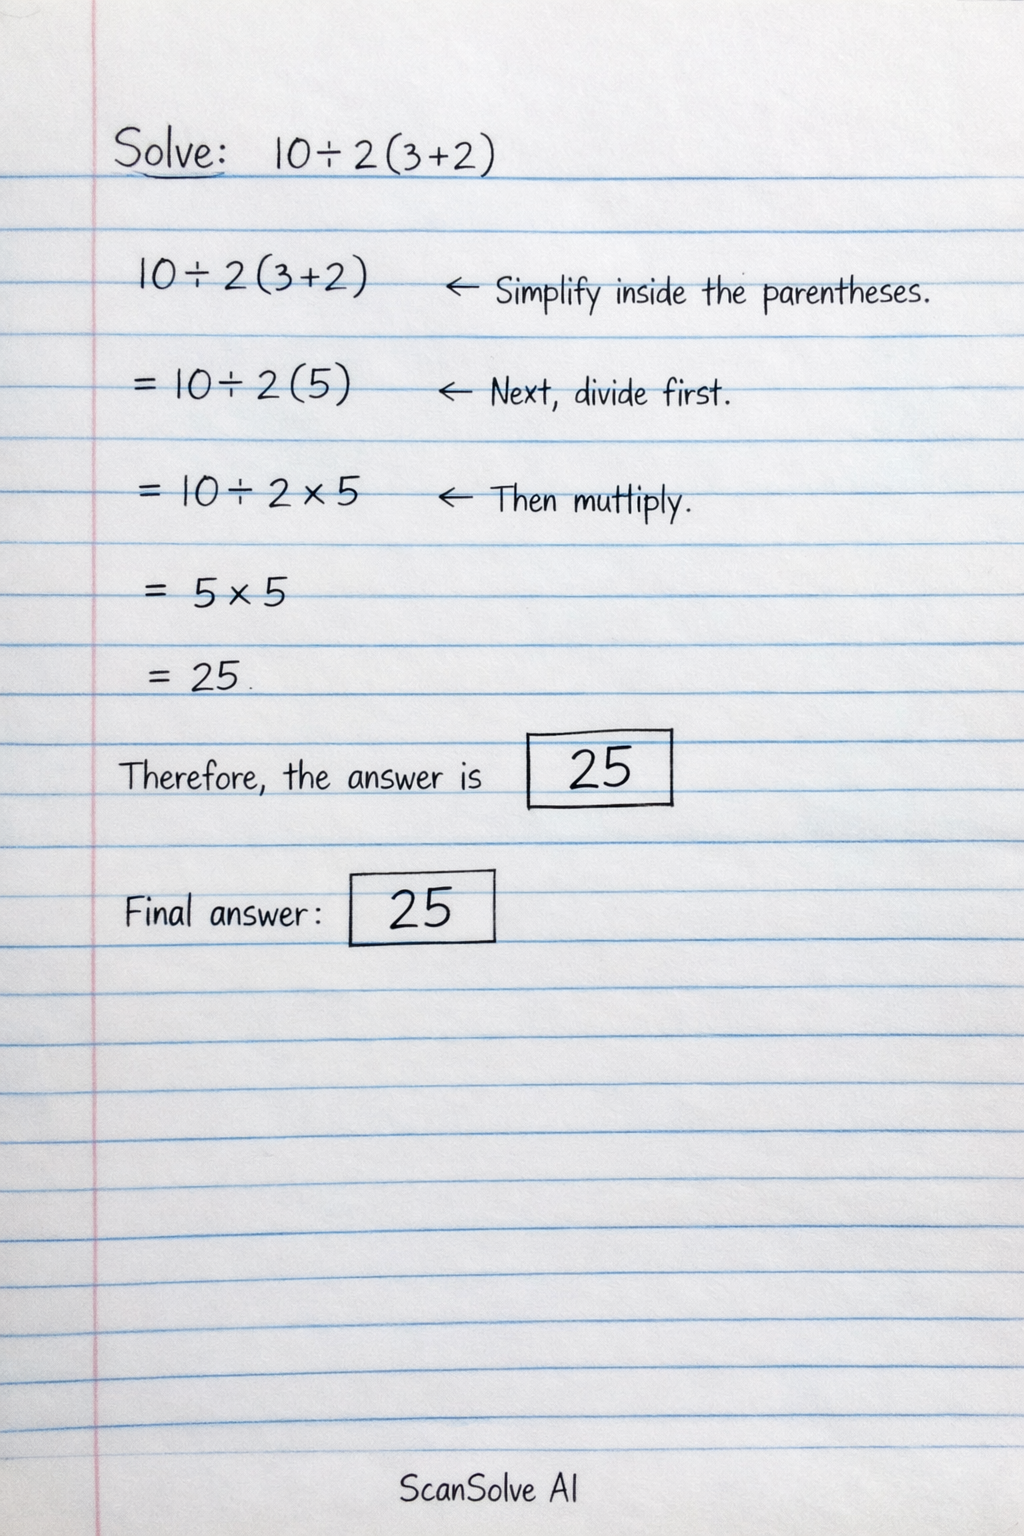 Solve: 10÷2(3+2)
10÷2(3+2) ← Simplify inside the parentheses.
= 10÷2(5) ← Next, divide first.
= 10÷2×5 ← Then muttiply.
= 5×5
= 25.
Therefore, the answer is 25
Final answer: 25
ScanSolve AI